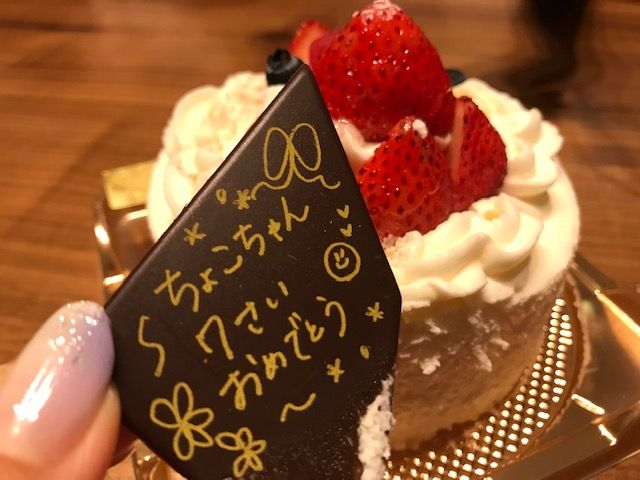 ちょこちゃん
7さい
おめでとう